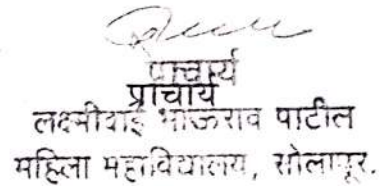 प्राचार्य
प्राचार्य
लक्ष्मीबाई भाऊराव पाटील
महिला महाविद्यालय, सोलापूर.